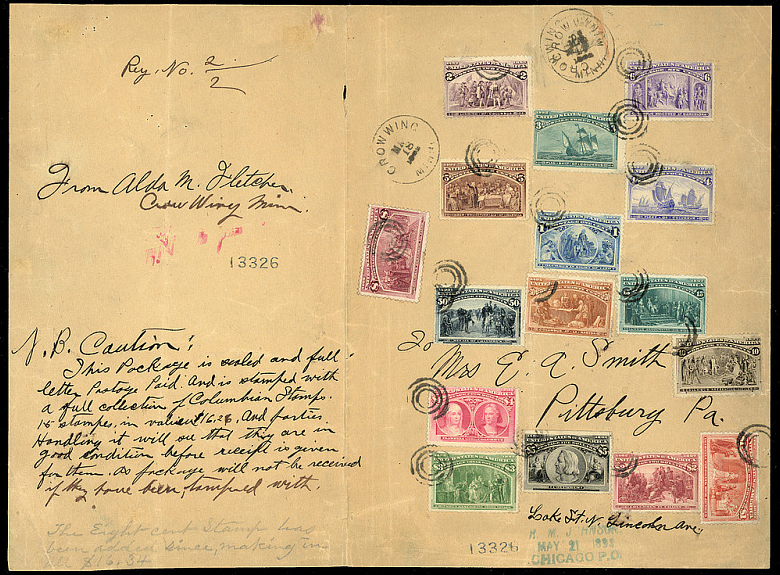 Reg. No. 2/2
From Alda M. Fletcher
Crow Wing Minn
13326
N. B. Caution!
This Package is sealed and full
letter Postage Paid and is stamped with
a full collection of Columbian Stamps.
15 stamps, in value $16.26. And parties
Handling it will see that they are in
good condition before receipt is given
for them. As package will not be received
if they have been tampered with.
The Eight cent Stamp has
been added since, making in
all $16.34
CROW WING
MINN
CROW WING
MINN
To Mrs E. A. Smith
Pittsburg Pa.
Lake St. N. Lincoln Ave
13326
MAY 21 1893
CHICAGO P.O.